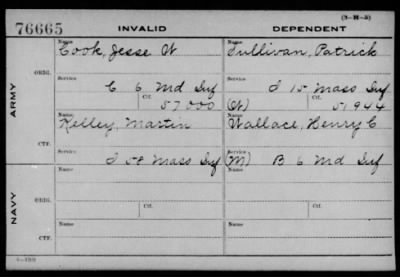 (3-H-5)
76665 INVALID DEPENDENT
ARMY
ORIG.
Name
Cook, Jesse W
Name
Sullivan, Patrick
Service
C 6 Md Inf
Ctf.
57000
Service
I 15 Mass Inf
(W)
Ctf.
51944
CTF.
Name
Kelley, Martin
Name
Wallace, Henry C
Service
I 58 Mass Inf
Service
(M) B 6 Md Inf
NAVY
ORIG.
Name
Name
Ctf.
Ctf.
CTF.
Name
Name